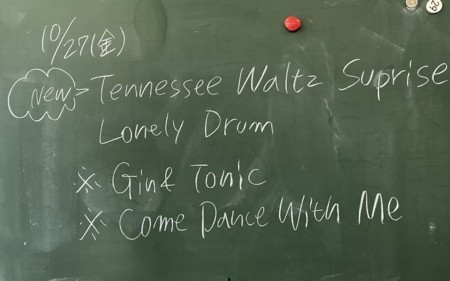 10/27(金)
New Tennessee Waltz Suprise
Lonely Drum
※ Gin & Tonic
※ Come Dance With Me